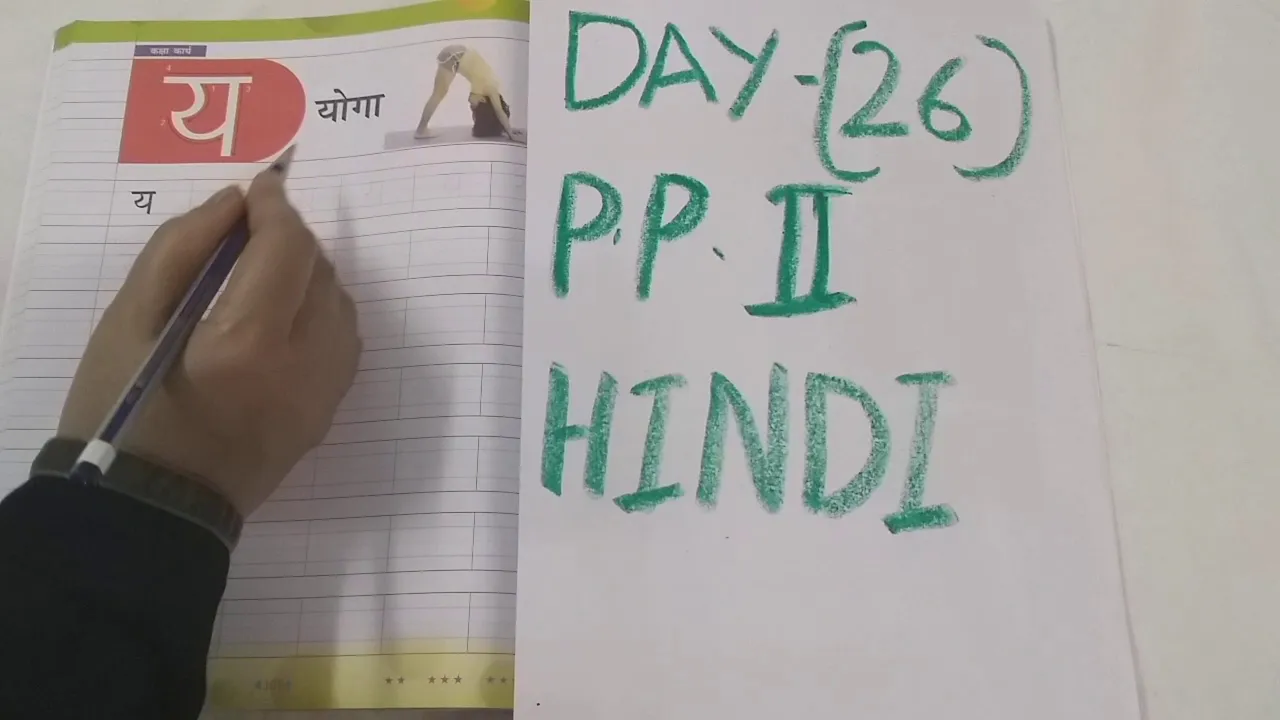 कक्षा कार्य
य
योगा
य
DAY-(26)
P.P. II
HINDI